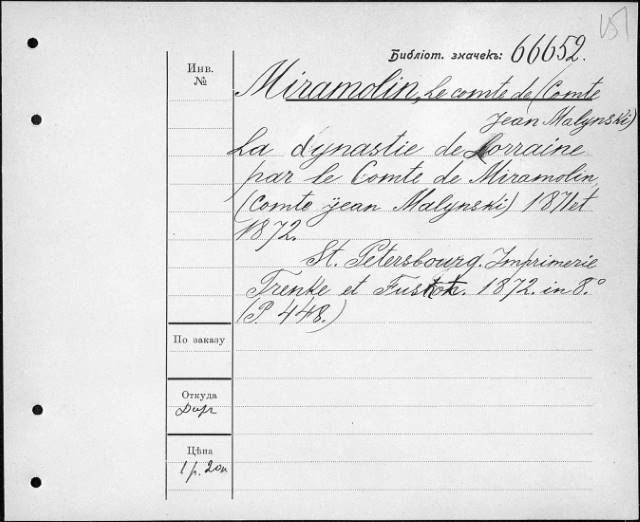 157
Библіот. значекъ: 66652.
Инв.
№
Miramolin, Le comte de (Comte
Jean Malynski)
La dynastie de Lorraine
par le Comte de Miramolin,
(Comte Jean Malynski) 1871 et
1872.
St. Petersbourg. Imprimerie
Trenke et Fusnot. 1872. in 8.°
(P. 448.)
По заказу
Откуда
Даръ
Цѣна
1 р. 20 к